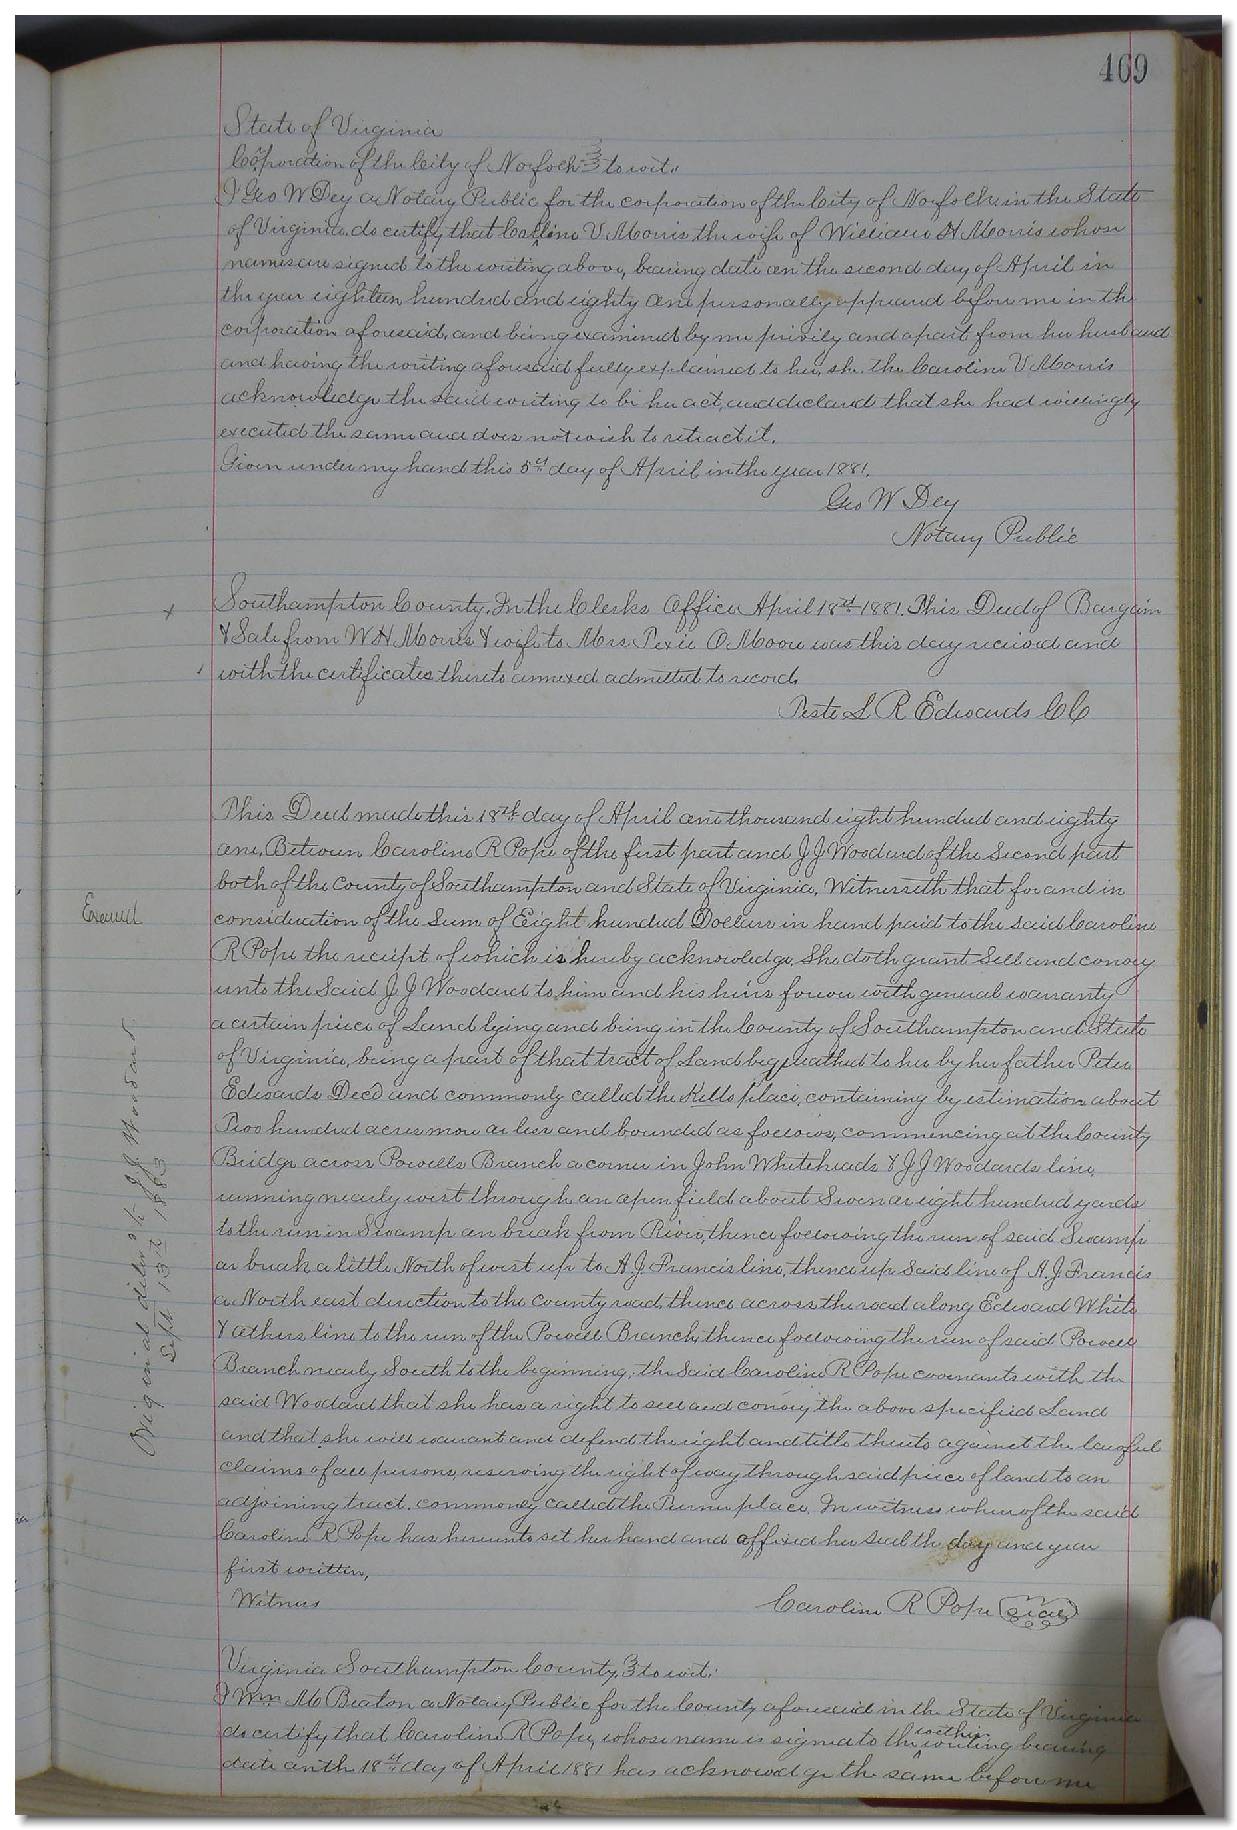 469
State of Virginia
Corporation of the City of Norfolk to wit:
I Geo W Dey a Notary Public for the corporation of the City of Norfolk in the State
of Virginia, do certify that Caroline V Morris the wife of William H Morris whose
names are signed to the writing above, bearing date on the second day of April in
the year eighteen hundred and eighty one personally appeared before me in the
corporation aforesaid, and being examined by me privily and apart from her husband
and having the writing aforesaid fully explained to her, she the Caroline V Morris
acknowledge the said writing to be her act, and declared that she had willingly
executed the same and does not wish to retract it.
Given under my hand this 5th day of April in the year 1881.
Geo W Dey
Notary Public
x Southampton County, In the Clerks Office April 18th 1881. This Deed of Bargain
& Sale from W H Morris & wife to Mrs Pexie O Moore was this day received and
with the certificates thereto annexed admitted to record.
Teste L R Edwards CC
This Deed made this 18th day of April one thousand eight hundred and eighty
one, Between Caroline R Pope of the first part and J J Woodard of the Second part
both of the County of Southampton and State of Virginia, Witnesseth that for and in
Examd
consideration of the Sum of Eight hundred Dollars in hand paid to the said Caroline
R Pope the receipt of which is hereby acknowledge, She doth grant Sell and convey
unto the Said J J Woodard to him and his heirs forever with general warranty
a certain piece of Land lying and being in the County of Southampton and State
of Virginia, being a part of that tract of Land bequeathed to her by her father Peter
Edwards Decd and commonly called the place, containing by estimation about
Two hundred acres more or less and bounded as follows, commencing at the County
Bridge across Powells Branch a corner in John Whiteheads & J J Woodards line,
running nearly west through an open field about Seven or eight hundred yards
to the run in Swamp or break from River, thence following the run of said Swamp
or break a little North of west up to A. J. Francis line, thence up Said line of A. J. Francis
a North east direction to the county road, thence across the road along Edward White
& others line to the run of the Powell Branch, thence following the run of said Powell
Branch nearly South to the beginning, the Said Caroline R Pope covenants with the
said Woodard that she has a right to sell and convey the above specified Land
and that she will warrant and defend the right and title thereto against the lawful
claims of all persons, reserving the right of way through said piece of land to an
adjoining tract, commonly called the Turner place. In witness whereof the said
Caroline R Pope has hereunto set her hand and affixed her seal the day and year
first written,
Original deliv'd to J. J. Woodard
Sept. 13th 1883
Witness
Caroline R Pope Seal
Virginia Southampton County, to wit:
I Wm M Beaton a Notary Public for the County aforesaid in the State of Virginia
do certify that Caroline R Pope, whose name is signed to the within writing bearing
date on th 18th day of April 1881 has acknowledge the same before me